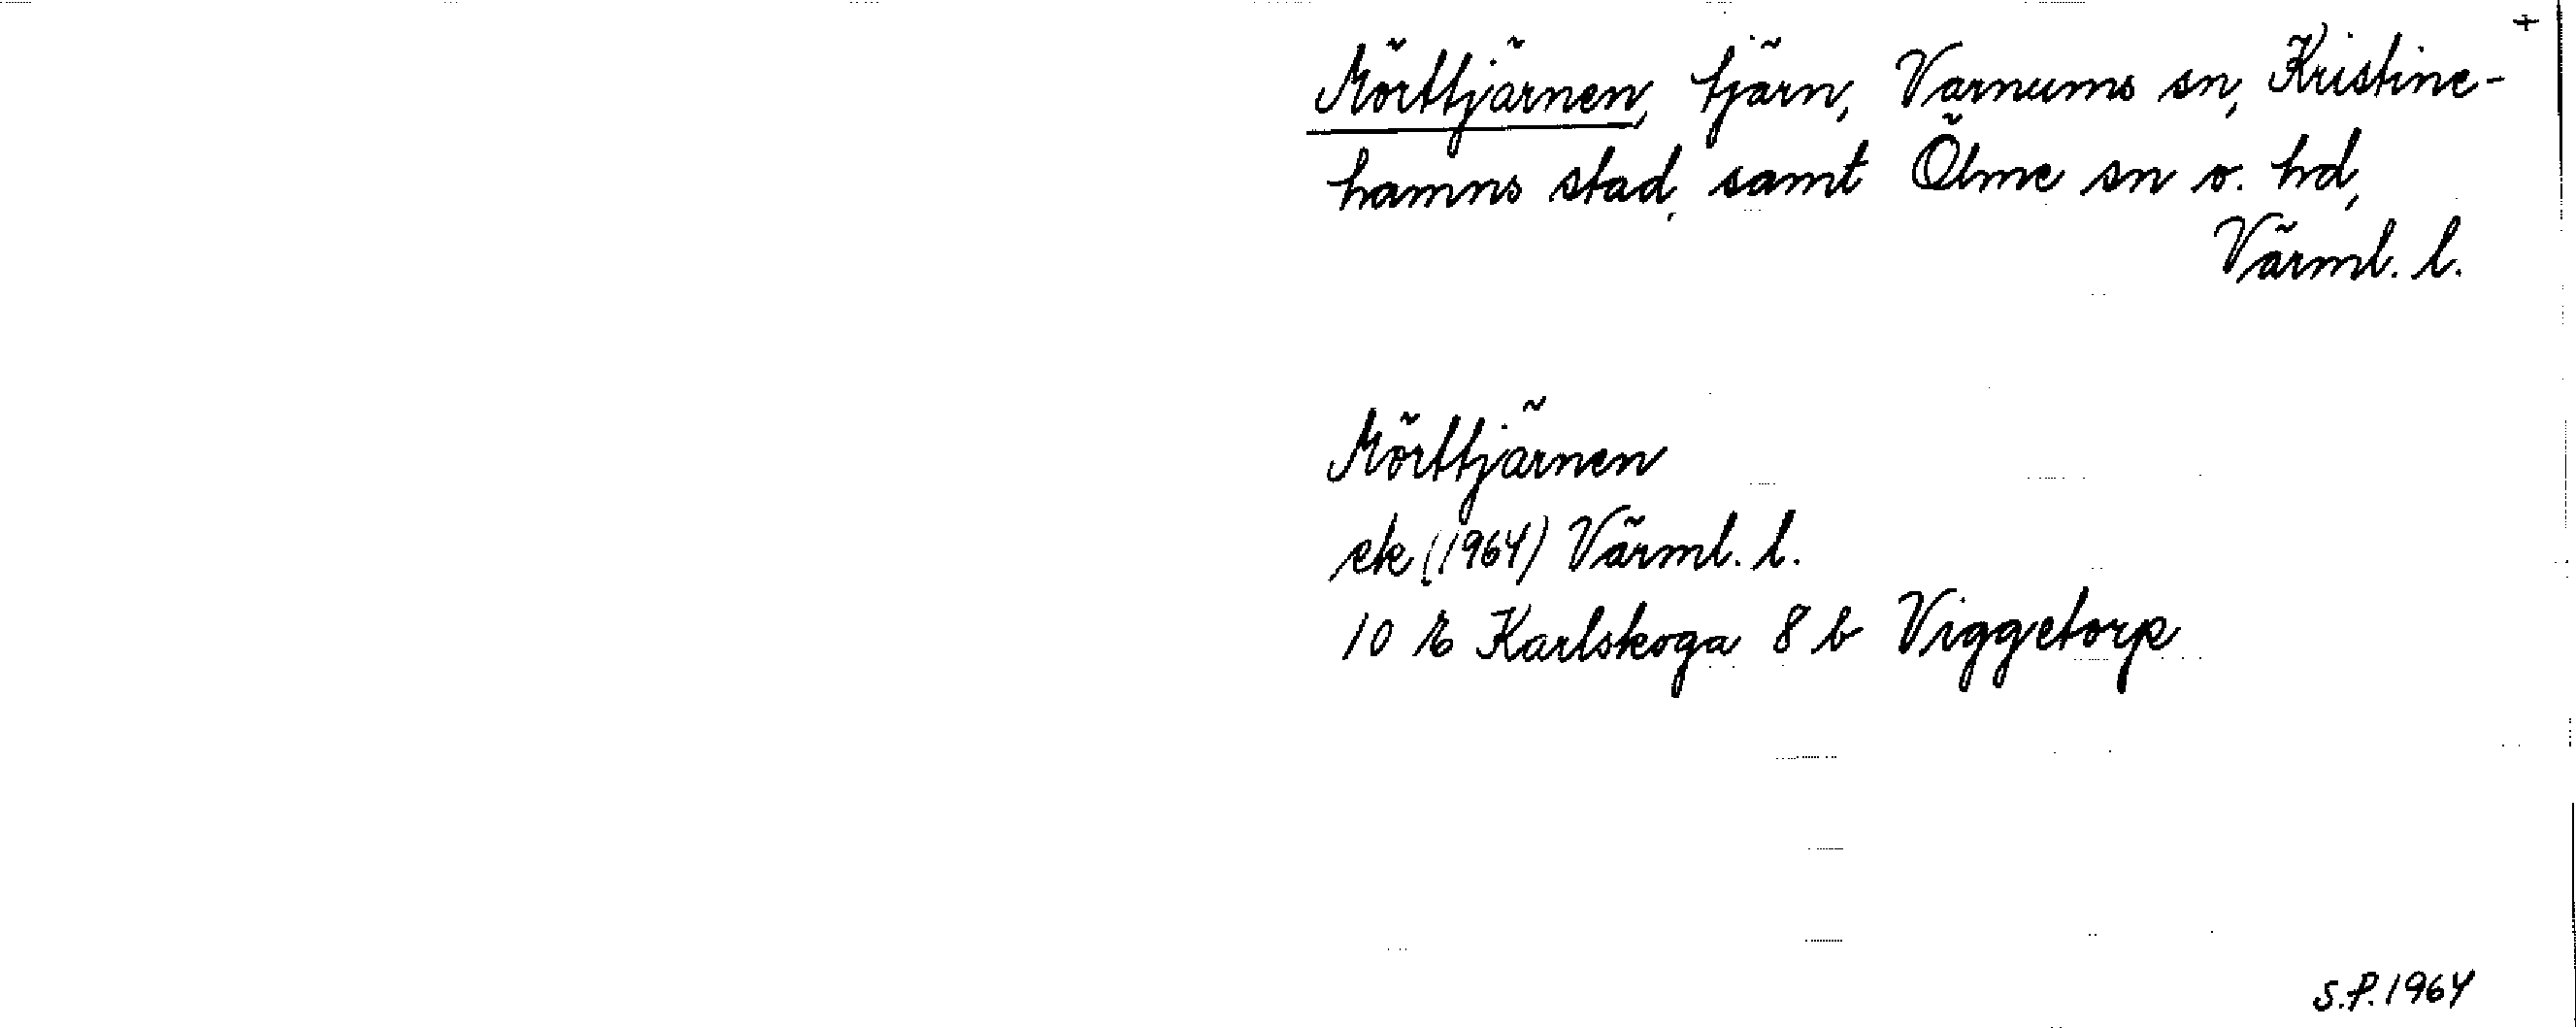 +
Mörttjärnen, tjärn, Varnums sn, Kristine-
hamns stad, samt Ölme sn o. hd,
Värml. l.
Mörttjärnen
ek (1964) Värml. l.
10 E Karlskoga 8 b Viggetorp
S.P. 1964